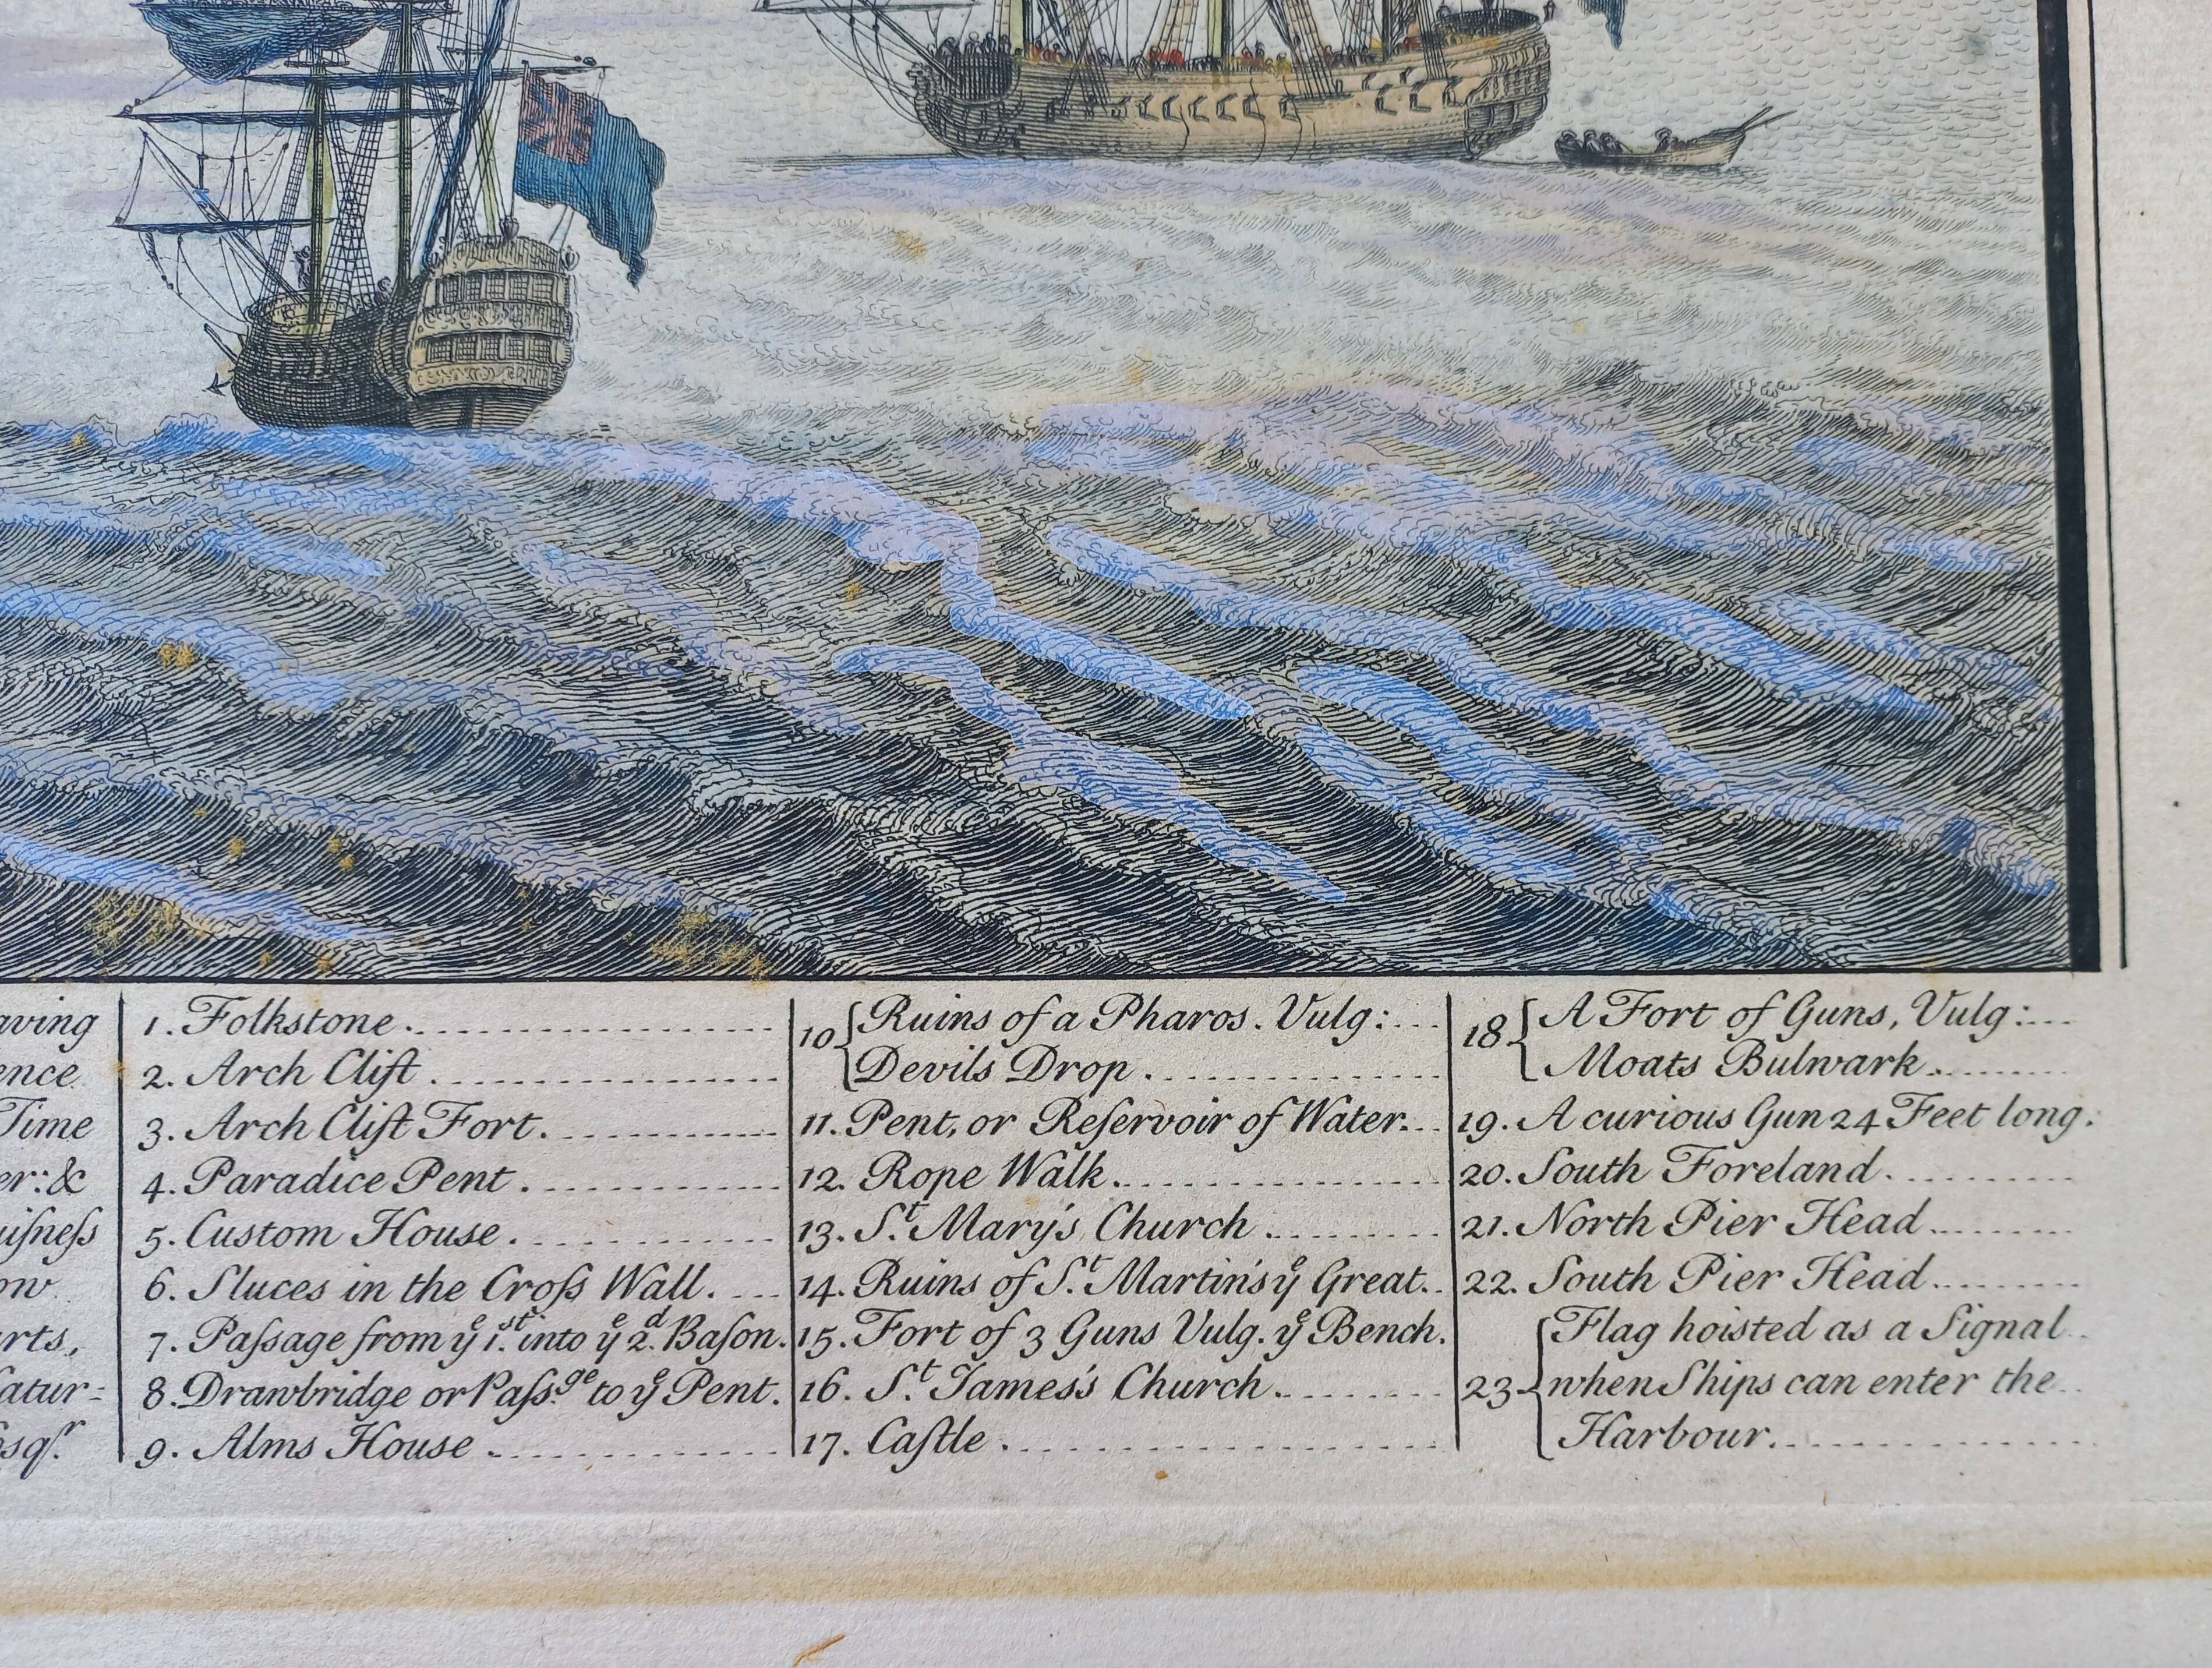 aving
ence
Time
er: &
uiſneſs
ow
arts,
atur=
sqr.
1. Folkstone
2. Arch Clift
3. Arch Clift Fort.
4. Paradice Pent
5. Custom House
6. Sluces in the Croſs Wall.
7. Paſsage from ye 1.st into ye 2.d Baſon.
8. Drawbridge or Paſs.ge to ye Pent.
9. Alms House
10 { Ruins of a Pharos. Vulg:
Devils Drop
11. Pent, or Reſervoir of Water.
12. Rope Walk.
13. S.t Mary's Church
14. Ruins of S.t Martin's ye Great.
15. Fort of 3 Guns Vulg. ye Bench.
16. S.t James's Church
17. Caſtle
18 { A Fort of Guns, Vulg:
Moats Bulwark
19. A curious Gun 24 Feet long.
20. South Foreland
21. North Pier Head
22. South Pier Head
23 { Flag hoisted as a Signal
when Ships can enter the
Harbour.